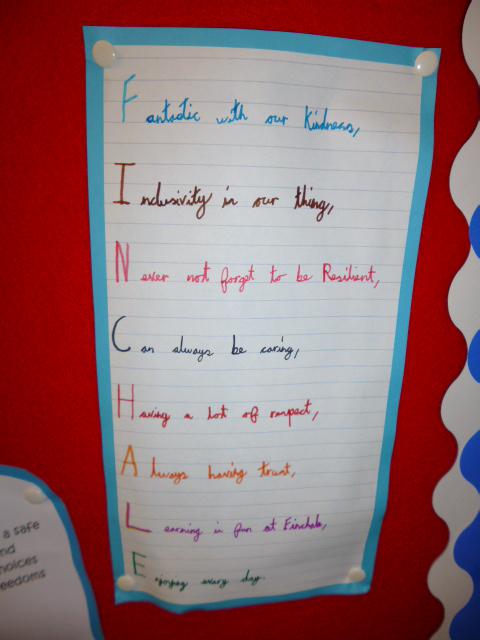 Fantastic with our kindness,
Inclusivity in our thing,
Never not forget to be Resilient,
Can always be caring,
Having a lot of respect,
Always having trust,
Learning is fun at Finchale,
Enjoying every day.
a safe
nd
hoices
eedoms